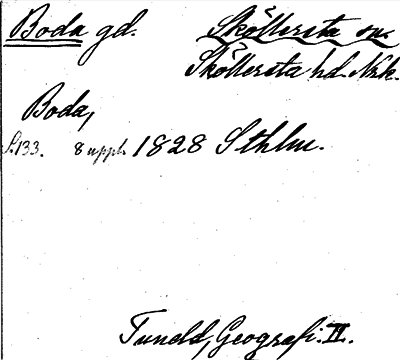 Boda gd. Sköllersta sn.
Sköllersta hd. Nrk.
Boda,
S.133. 8 uppl. 1828 Sthlm.
Tuneld, Geografi. II.